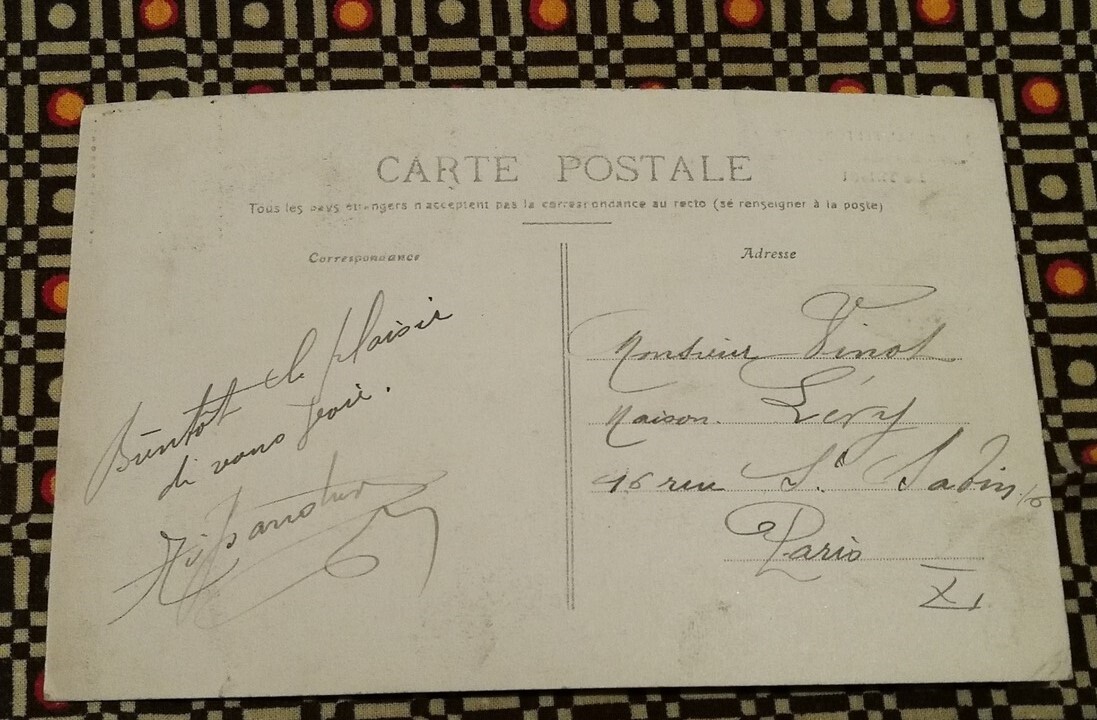 CARTE POSTALE
Tous les pays étrangers n'acceptent pas la correspondance au recto (se renseigner à la poste)
Correspondance
Bientôt le plaisir
de vous voir.
Adresse
Monsieur Vinot
Maison Lévy
46 rue St Sabin
Paris
XI